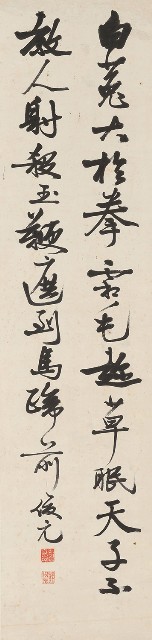 白兔大於拳霜毛趁草眠天子不
教人射殺玉鞭遮到馬蹄前 俊元